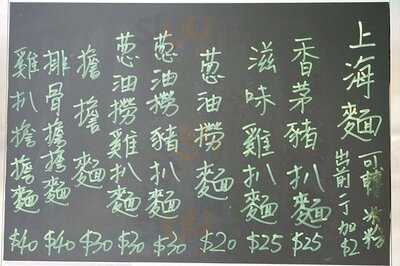 上海麵 可轉米粉
出前一丁加$2
香茅豬扒麵 $25
滋味雞扒麵 $25
葱油撈麵 $20
葱油撈豬扒麵 $30
葱油撈雞扒麵 $30
擔擔麵 $30
排骨擔擔麵 $40
雞扒擔擔麵 $40